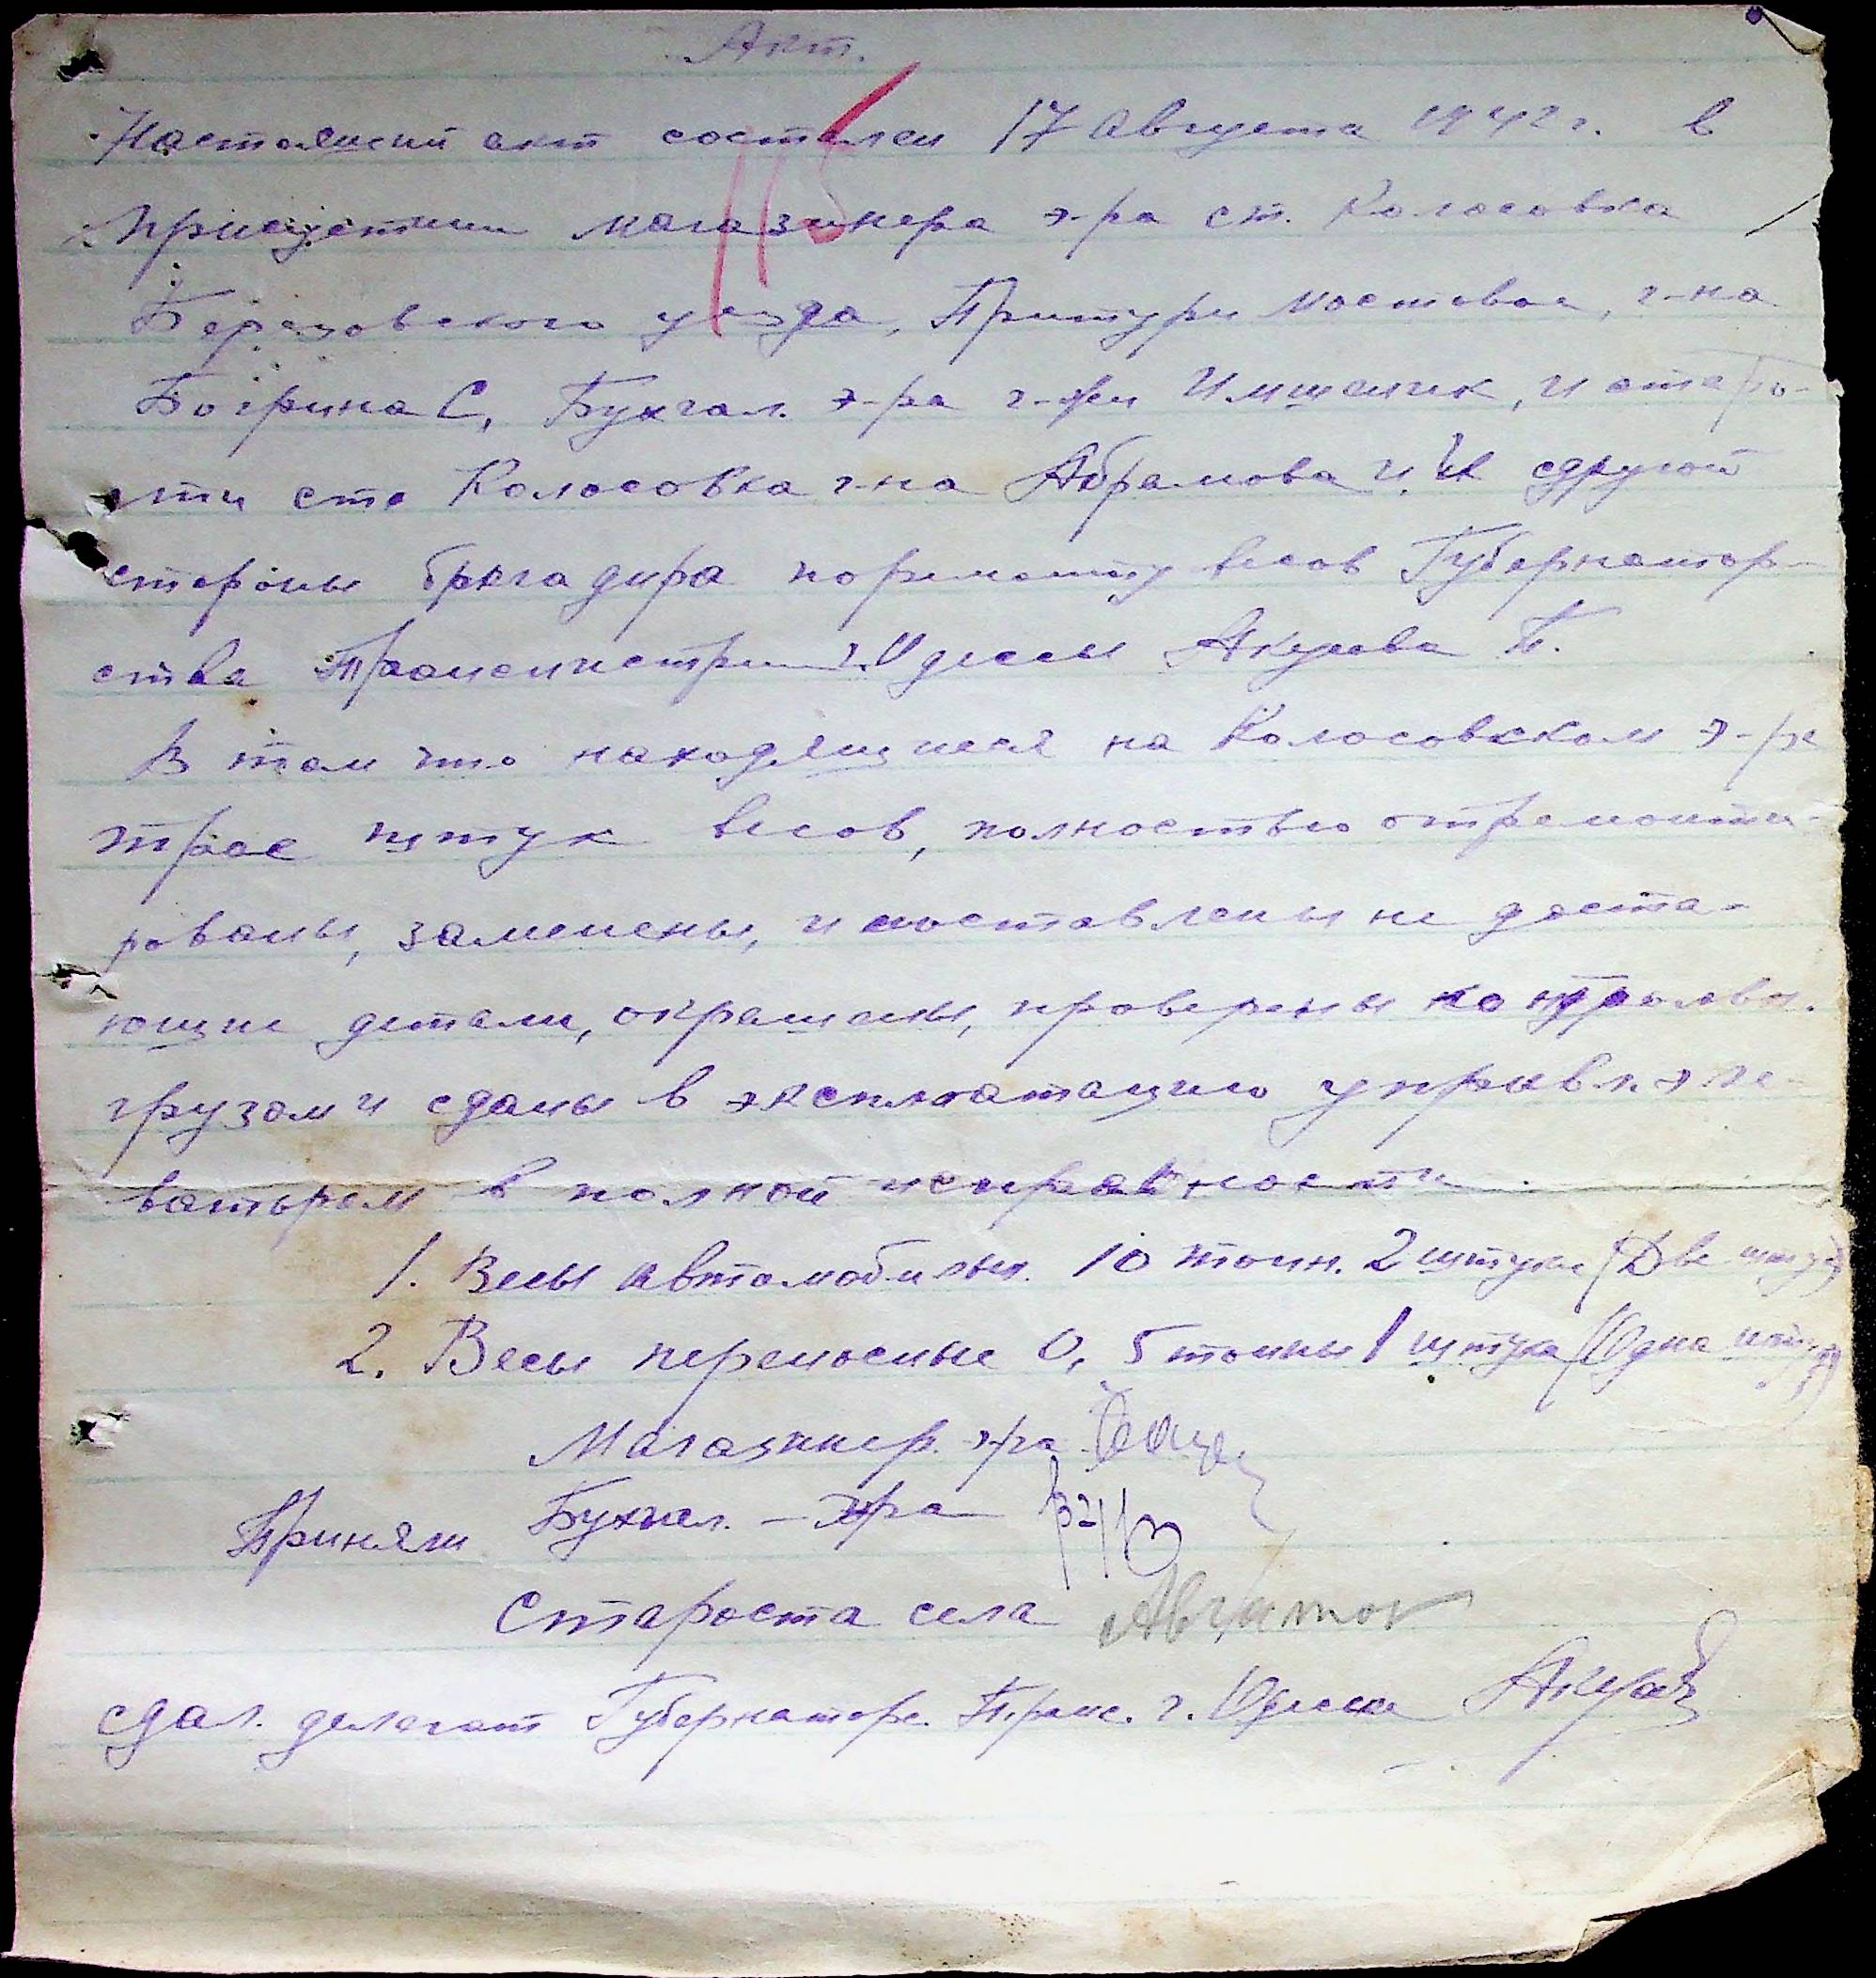 Акт.
115
Настоящий акт состален 17 августа 1942 г. в
присуствии магазинера э-ра ст. Колосовка
Березовского уезда, Притури Мостовое, г-на
Боерина С, Бухгал. э-ра г-жи Имшеник, и старо-
сти ста Колосовка г-на Абрамова и сдругой
стороны бригадира поремонту весов Губернатор-
ства Транснистрии г. Одессы Акулова П.
В том что находящиеся на Колосовском э-ре
трое штук весов, полностью отремонти-
рованы, заменены, и поставлены не доста-
ющие детали, окрашены, проверены контрольн.
грузом и сданы в эксплоатацию управл. эле-
ватором в полной исправности.
1. Весы автомобильн. 10 тонн. 2 штуки (Две штук)
2. Весы переносные 0,5 тонны 1 штука (Одна штука)
Магазинер. э-ра
Приняли Бухгал. - э-ра
Староста села
сдал. делегат Губернаторс. Транс. г. Одесса